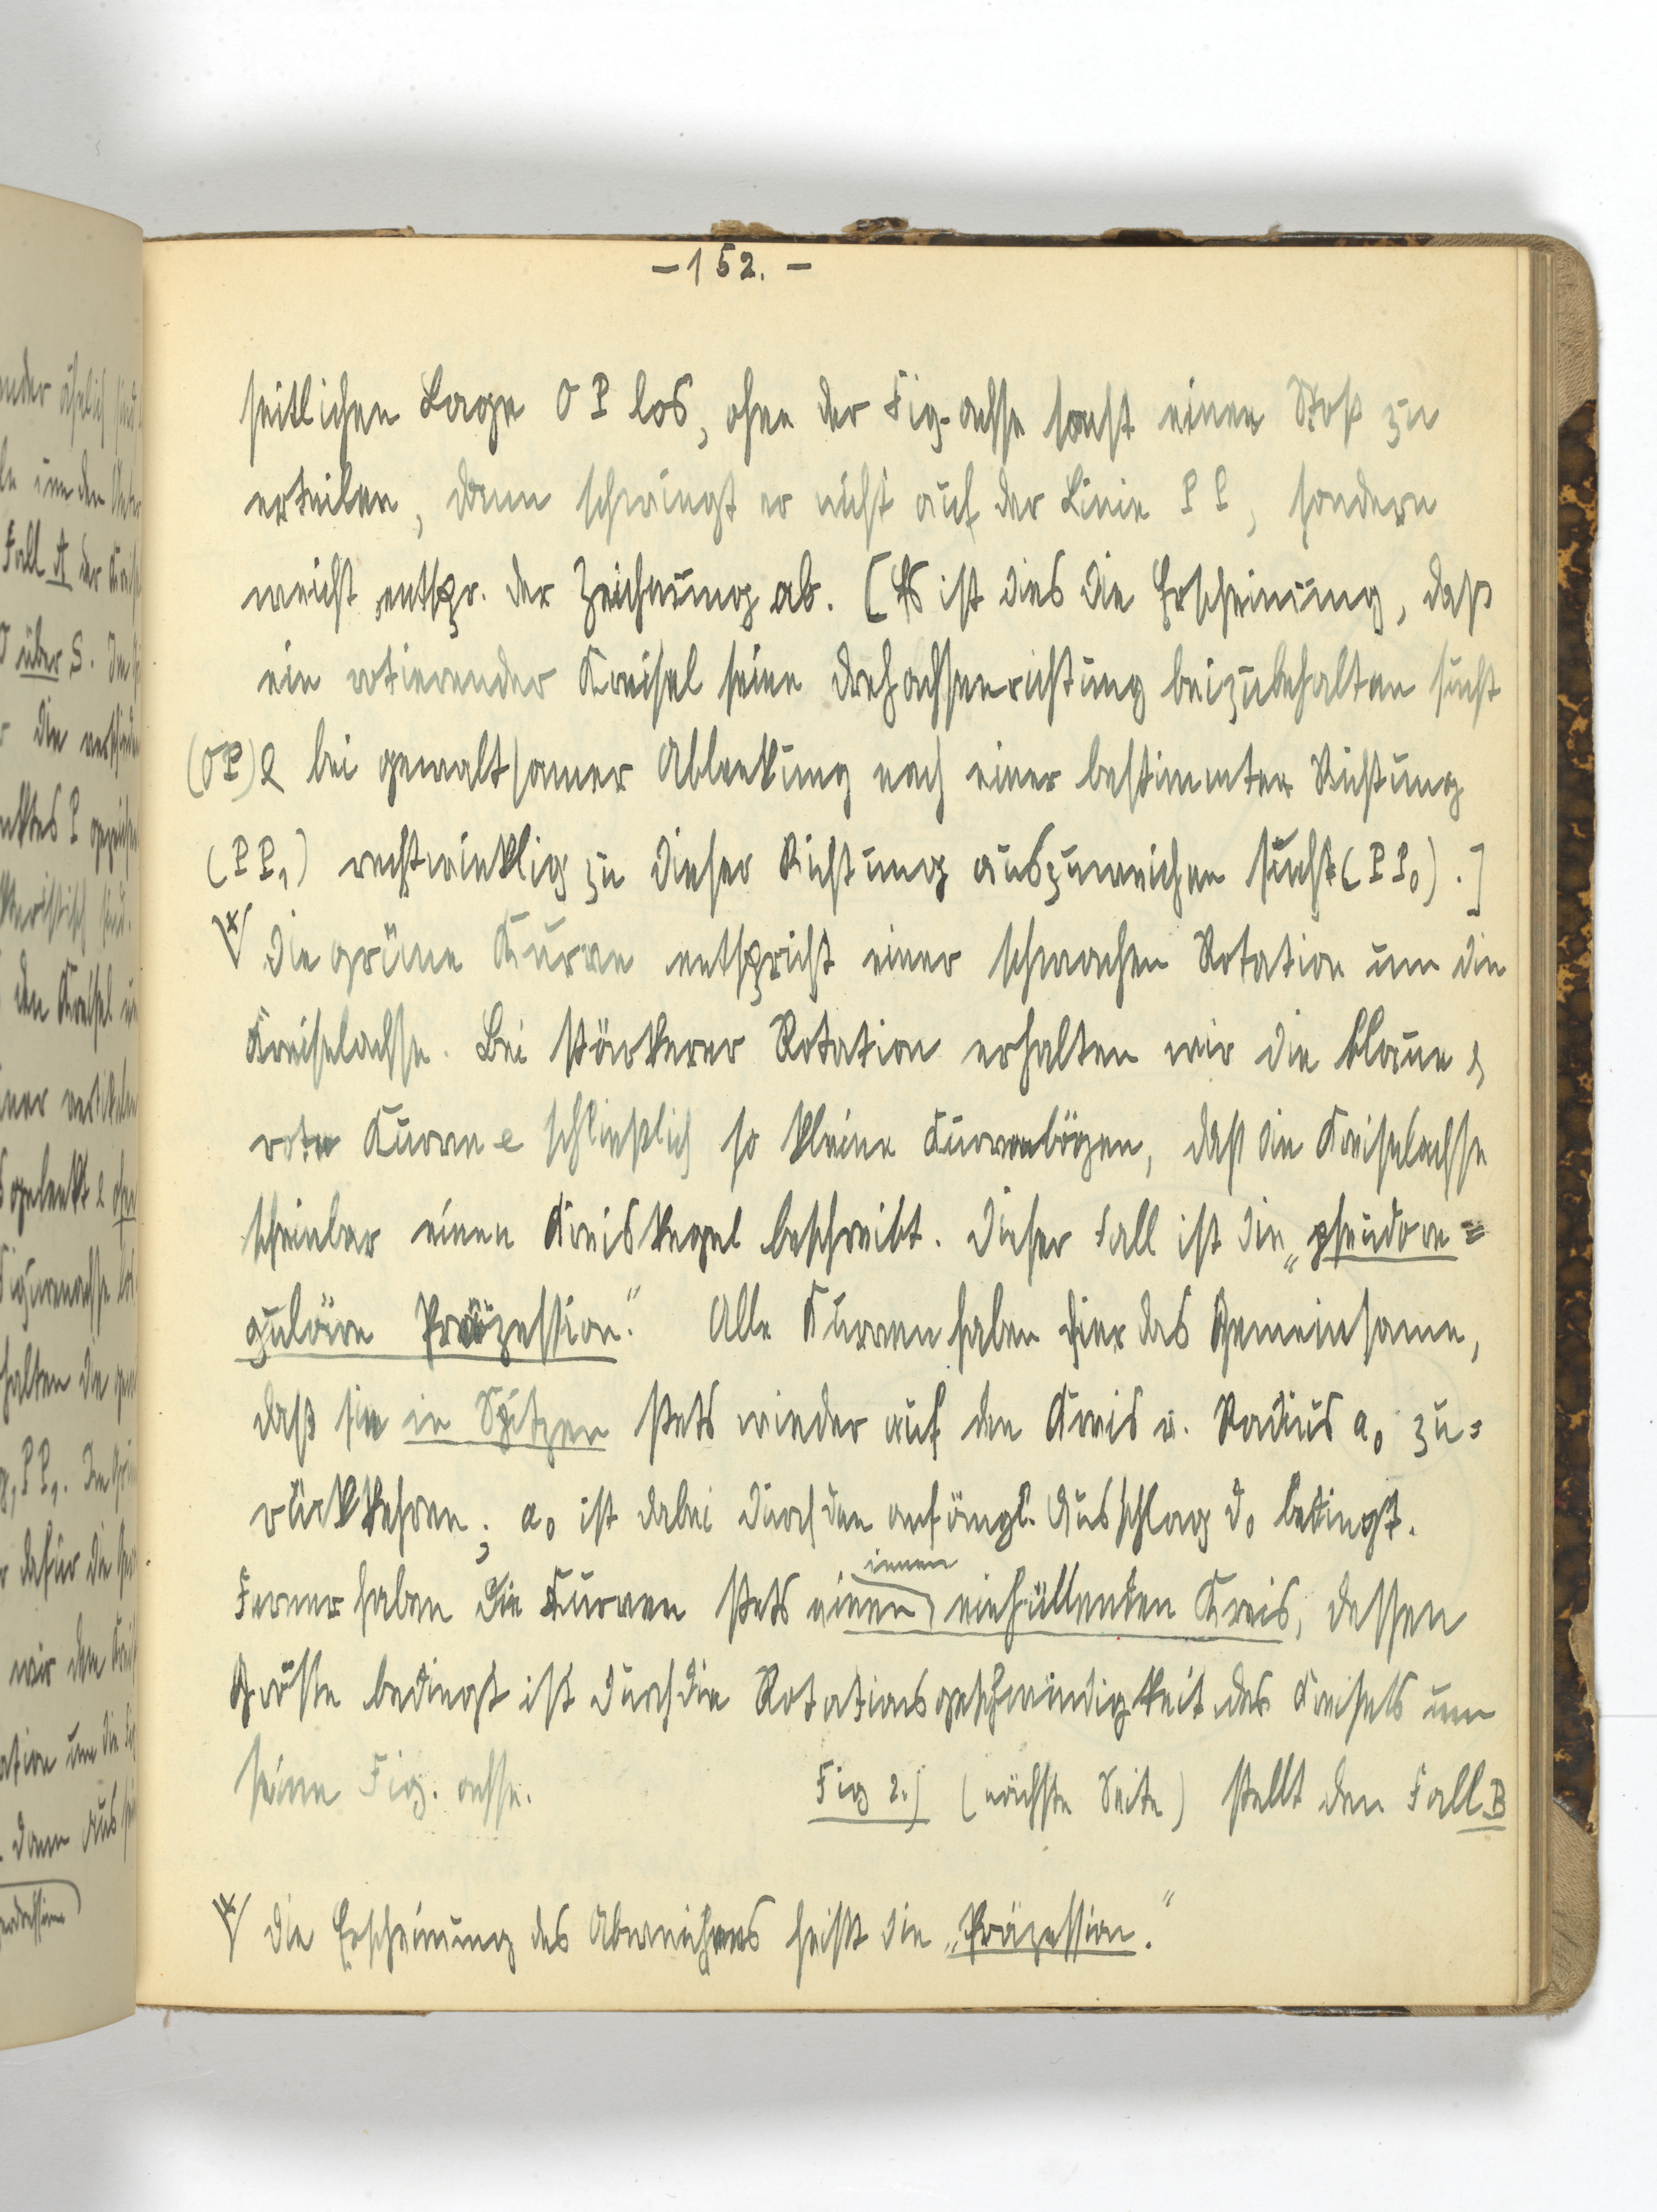 – 152. –
seitlichen Lage O P los, ohne der Fig. achse sonst einen Stoß zu
erteilen, dann schwingt er nicht auf der Linie P P, sondern
weicht entspr. der Zeichnung ab. [Es ist dies die Erscheinung, daß
ein rotierender Kreisel seine Drehachsenrichtung beizubehalten sucht
(OP) & bei gewaltsamer Ablenkung nach einer bestimmten Richtung
(P P₁) rechtwinklig zu dieser Richtung auszuweichen sucht (P P₀).]
*/ Die grüne Kurve entspricht einer schwachen Rotation um die
Kreiselachse. Bei stärkerer Rotation erhalten wir die blaue &
rote Kurve & schließlich so kleine Kurvenbögen, daß die Kreiselachse
scheinbar einen Kreiskegel beschreibt. Dieser Fall ist die „pseudore=
guläre Präzession." Alle Kurven haben hier das Gemeinsame,
daß sie in Spitzen stets wieder auf den Kreis v. Radius a₀ zu=
rückkehren; a₀ ist dabei durch den anfängl. Ausschlag d₀ bedingt.
innen
Ferner haben die Kurven stets einen einhüllenden Kreis, dessen
Größe bedingt ist durch die Rotationsgeschwindigkeit des Kreisels um
seine Fig. achse. Fig 2.) (nächste Seite) stellt den Fall B
*/ Die Erscheinung des Abweichens heißt die „Präzession."
ander ähnlich sind
Fall A der
O über S.
die verschieden
den Kreisel
Figurenachse
halten die
dafür die
wir den
um die
dann aus